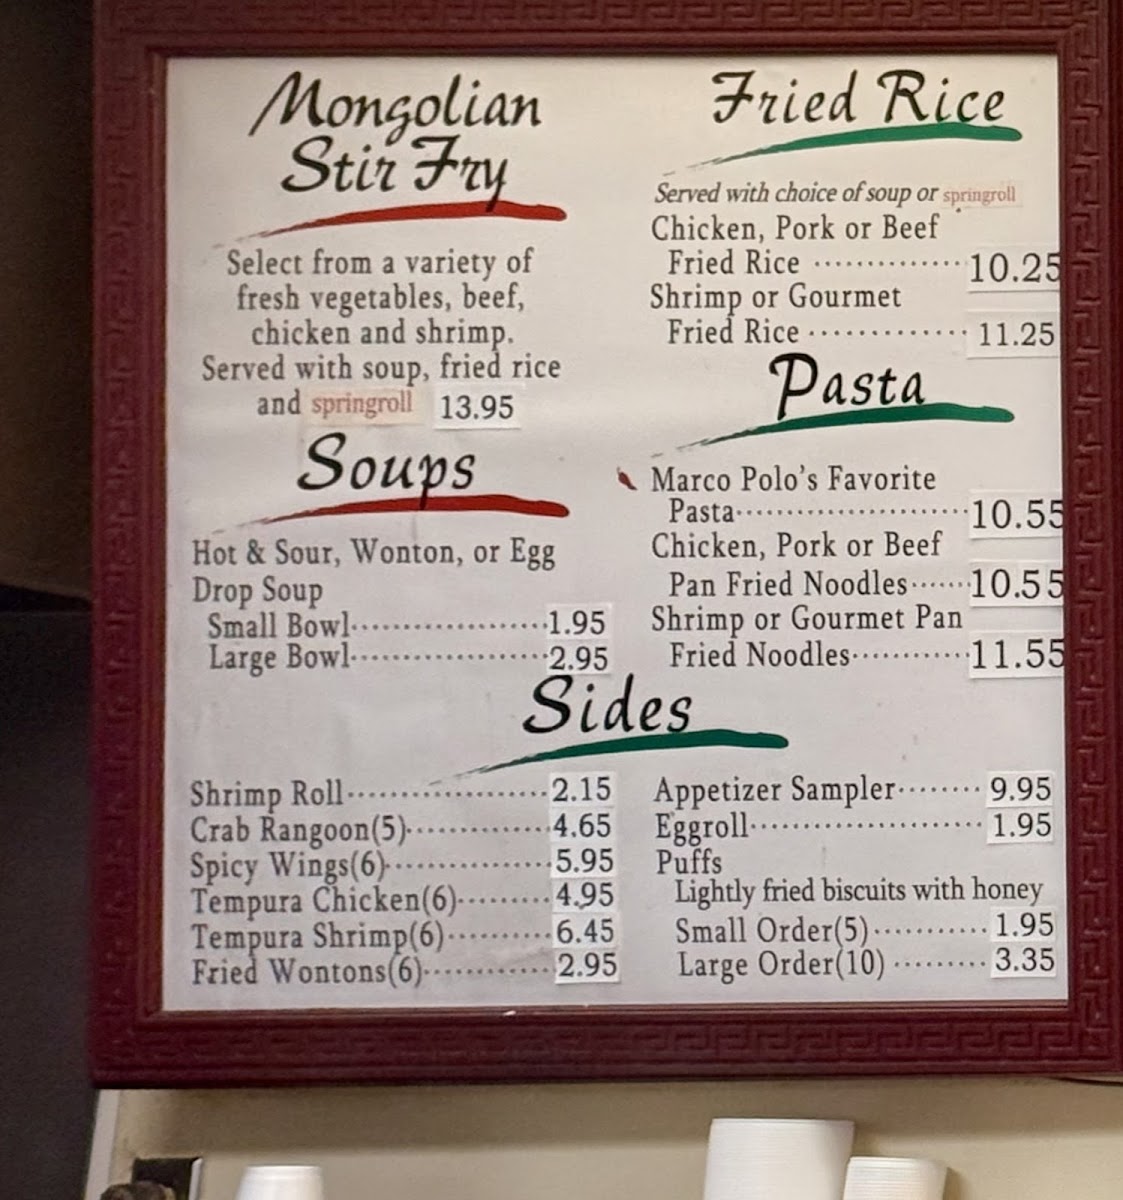 Mongolian
Stir Fry
Select from a variety of
fresh vegetables, beef,
chicken and shrimp.
Served with soup, fried rice
and springroll 13.95
Soups
Hot & Sour, Wonton, or Egg
Drop Soup
Small Bowl 1.95
Large Bowl 2.95
Fried Rice
Served with choice of soup or springroll
Chicken, Pork or Beef
Fried Rice 10.25
Shrimp or Gourmet
Fried Rice 11.25
Pasta
Marco Polo's Favorite
Pasta 10.55
Chicken, Pork or Beef
Pan Fried Noodles 10.55
Shrimp or Gourmet Pan
Fried Noodles 11.55
Sides
Shrimp Roll 2.15
Crab Rangoon(5) 4.65
Spicy Wings(6) 5.95
Tempura Chicken(6) 4.95
Tempura Shrimp(6) 6.45
Fried Wontons(6) 2.95
Appetizer Sampler 9.95
Eggroll 1.95
Puffs
Lightly fried biscuits with honey
Small Order(5) 1.95
Large Order(10) 3.35